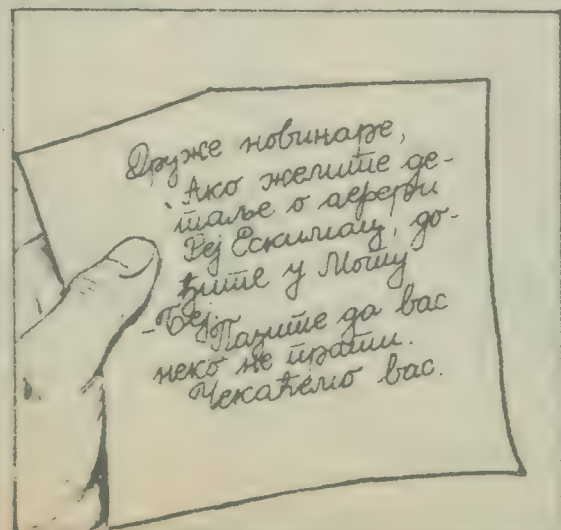 Друже новинаре,
Ако желите де-
таље о афери
до-
ђите у
-Беј.
Пазите да вас
неко не прати.
Чекаћемо вас.